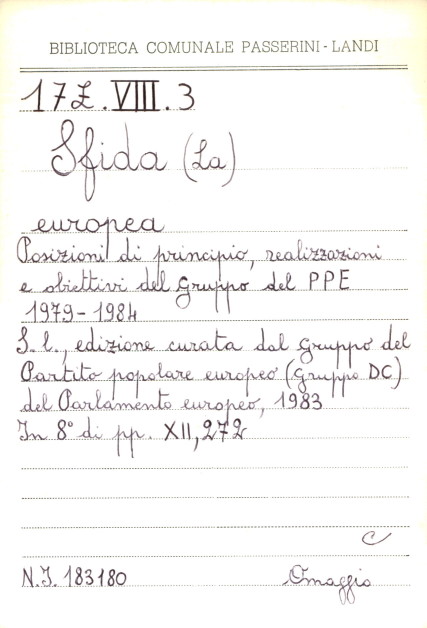 BIBLIOTECA COMUNALE PASSERINI - LANDI
17Z.VIII.3
Sfida (La)
europea
Posizioni di principio, realizzazioni
e obiettivi del Gruppo del PPE
1979-1984
S.l., edizione curata dal Gruppo del
Partito popolare europeo (Gruppo DC)
del Parlamento europeo, 1983
In 8° di pp. XII, 272
C
N.I. 183180 Omaggio